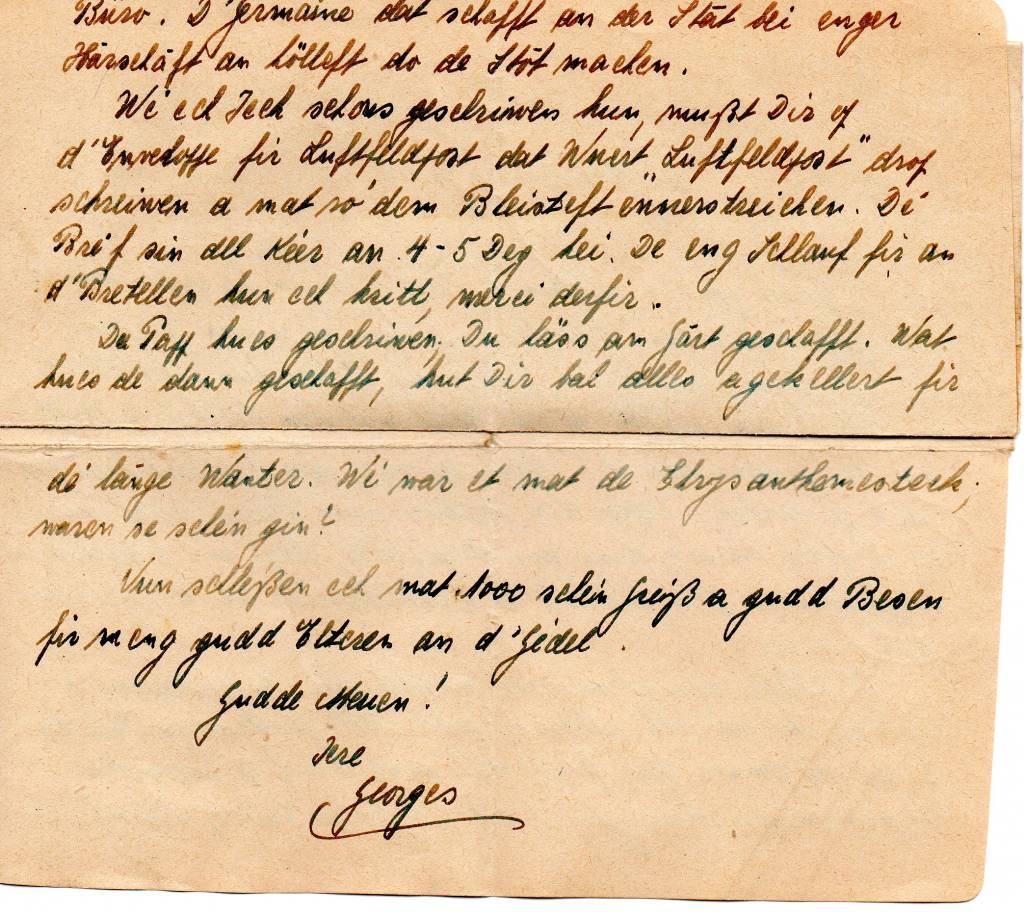 Büro. D'Germaine dat schafft an der Stât bei enger
Härschâft an hölleft do de Stôt machen.
Wi ech Iech schons geschriwen hun, mußt Dir of
d'Enveloffe fir Luftfeldfost dat Wuert "Luftfeldfost" drof
schreiwen a mat ro'dem Bleisteft ënnerstreichen. Dé
Bréf sin all Kéer an 4-5 Deg hei. De eng Schlauf fir an
d'Bretellen hun ech kritt, merci derfir.
De Paff hues geschriwen, Du läss am Gârt geschafft. Wat
hues de dann geschafft, hut Dir bal alles agekellert fir
dé lânge Wanter. Wi war et mat de Chrysanthemesteck,
waren se schéin gin?
Vun schléßen ech mat 1000 schéin Gréiß a gudd Besen
fir meng gudd Elteren an d'Gédel.
Gudde Meuen!
Iere
Georges